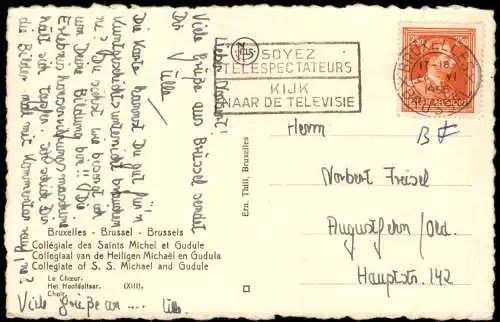 Lieber Norbert!
Viele Grüße aus Brüssel sendet
Dir Ulla
Die Karte kannst Du gut für'n
Kunstgeschichtsunterricht brauchen
ne? Du siehst wie besorgt ich
um Deine Bildung bin!! (Die
hält sich tapfer. Ich schicke Dir
die Bilder mal mit Kommentar
Viele Grüße an .... Ulla.
SOYEZ
TELESPECTATEURS
KIJK
NAAR DE TELEVISIE
17-18
BELGIQUE-BELGIE
Herrn
Norbert Freisel
Augustfehn/Old.
Hauptstr. 142
Ern. Thill, Bruxelles
Bruxelles - Brussel - Brussels
Collégiale des Saints Michel et Gudule
Collegiaal van de Heiligen Michaël en Gudula
Collegiate of S. S. Michael and Gudule
Le Chœur.
Het Hoofdaltaar. (XIII)
Choir.